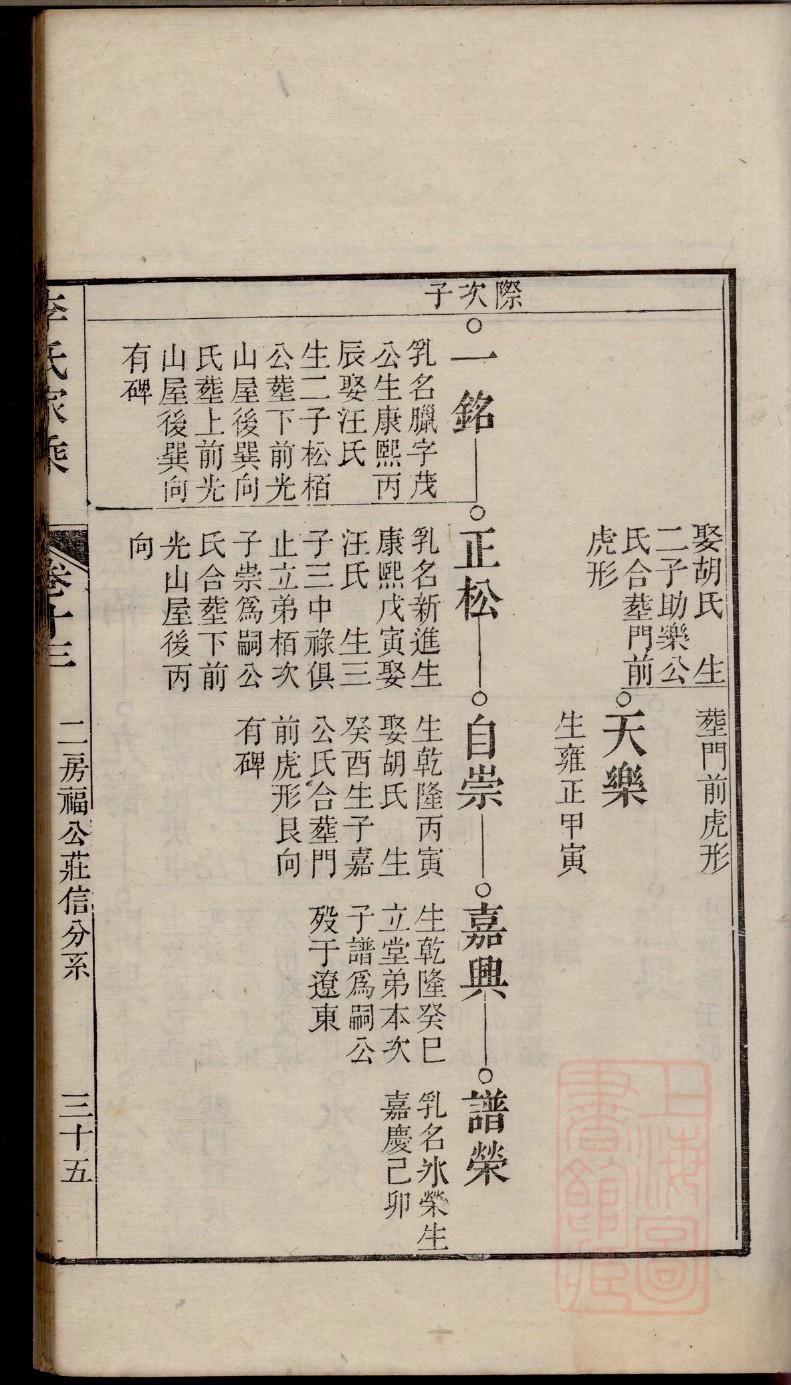 際次子
娶胡氏　生
二子助樂公
氏合塟門前
虎形
塟門前虎形
天樂
生雍正甲寅
一銘
乳名臘字茂
公生康熙丙
辰娶汪氏
生二子松栢
公塟下前光
山屋後巽向
氏塟上前光
山屋後巽向
有碑
正松
乳名新進生
康熙戊寅娶
汪氏　生三
子三中祿俱
止立弟栢次
子崇爲嗣公
氏合塟下前
光山屋後丙
向
自崇
生乾隆丙寅
娶胡氏　生
癸酉生子嘉
公氏合塟門
前虎形艮向
有碑
嘉興
生乾隆癸巳
立堂弟本次
子譜爲嗣公
歿于遼東
譜榮
乳名氷榮生
嘉慶己卯
李氏家乘
卷十三
二房福公莊信分系
三十五
上海圖
書館藏